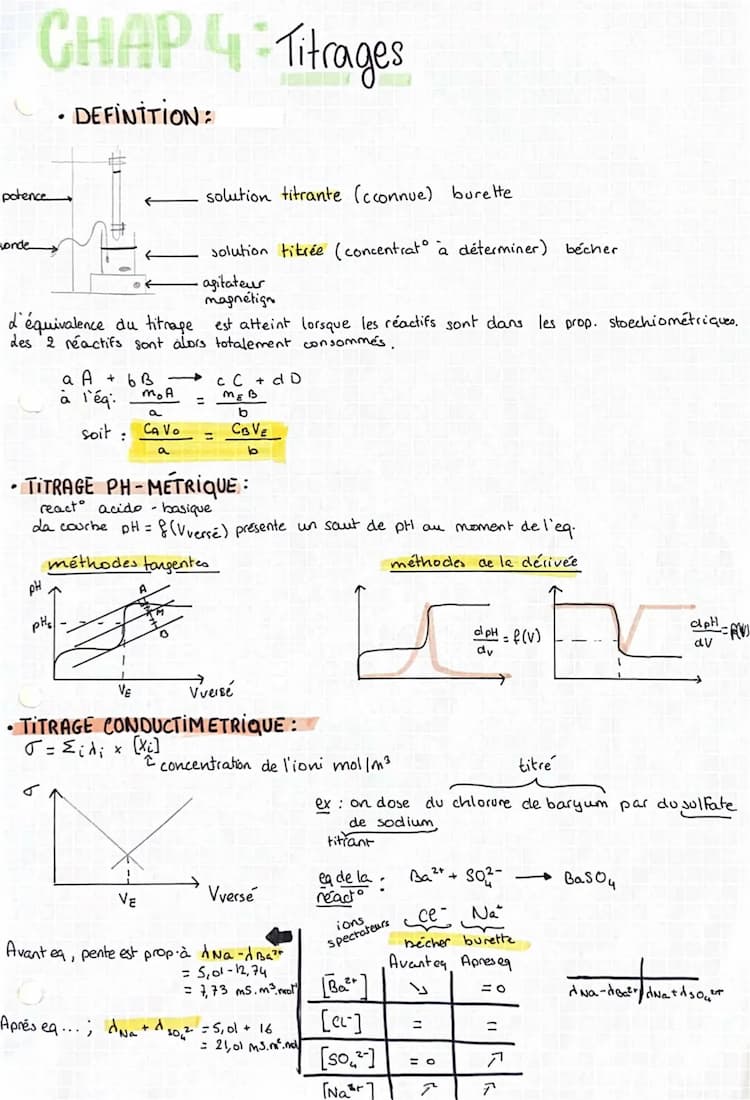 CHAP 4 : Titrages
• DEFINITION :
potence
solution titrante (cconnue) burette
sonde
solution titrée (concentrat° à déterminer) bécher
agitateur
magnétiqn
d'équivalence du titrage est atteint lorsque les réactifs sont dans les prop. stoechiométriques.
des 2 réactifs sont alors totalement consommés.
a A + b B → c C + d D
à l'éq: m₀A / a = mE B / b
soit : CA V₀ / a = CB VE / b
• TITRAGE PH-MÉTRIQUE :
react° acido-basique
da courbe pH = f(Vversé) présente un saut de pH au moment de l'eq.
méthodes tangentes
méthodes de la dérivée
pH
A
pHE
M
B
VE
Vversé
dpH/dv = f(V)
dpH/dV = f(V)
• TITRAGE CONDUCTIMETRIQUE :
σ = Σi λi × [Xi]
concentration de l'ioni mol/m³
titré
σ
ex : on dose du chlorure de baryum par du sulfate
de sodium
titrant
Vversé
VE
eq de la réact° : Ba²⁺ + SO₄²⁻ → BaSO₄
ions spectateurs Cl⁻ Na⁺
bécher burette
Avant eq, pente est prop. à λNa - λBa²⁺
= 5,01 - 12,74
= 7,73 mS.m².mol⁻¹
Après eq ... ; λNa + λSO₄²⁻ = 5,01 + 16
= 21,01 mS.m².mol
Avant eq Apres eq
[Ba²⁺] ↘ = 0
[CL⁻] = =
[SO₄²⁻] = 0 ↗
[Na⁺] ↗ ↗
λNa - λBa²⁺ | λNa + λSO₄²⁻